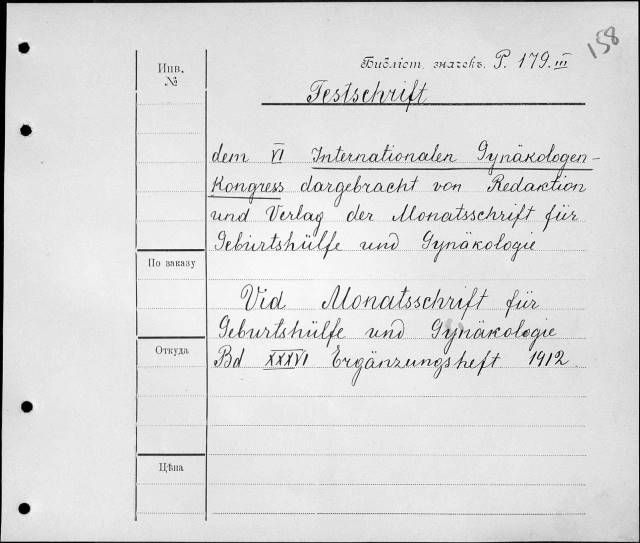 158
Инв.
№
Библіот. значекъ. P. 179.III
Festschrift
dem VI Internationalen Gynäkologen-
Kongress dargebracht von Redaktion
und Verlag der Monatsschrift für
Geburtshülfe und Gynäkologie
По заказу
Vid Monatsschrift für
Geburtshülfe und Gynäkologie
Откуда
Bd XXXVI Ergänzungsheft 1912.
Цѣна